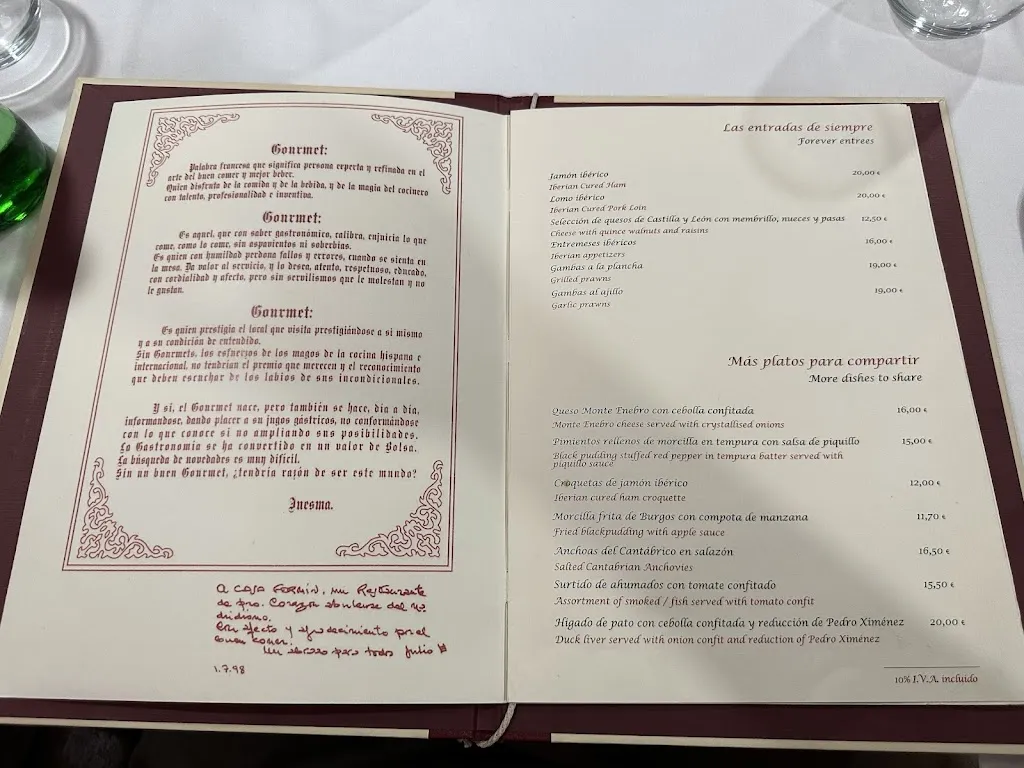 Gourmet:
Palabra francesa que significa persona experta y refinada en el
arte del buen comer y mejor beber.
Quien disfruta de la comida y de la bebida, y de la magia del cocinero
con talento, profesionalidad e inventiva.
Gourmet:
Es aquel, que con saber gastronómico, calibra, enjuicia lo que
come, como lo come, sin aspavientos ni soberbias.
Es quien con humildad perdona fallos y errores, cuando se sienta en
la mesa. Da valor al servicio, y lo desea, atento, respetuoso, educado,
con cordialidad y afecto, pero sin servilismos que le molestan y no
le gustan.
Gourmet:
Es quien prestigia el local que visita prestigiándose a si mismo
y a su condición de entendido.
Sin Gourmets, los esfuerzos de los magos de la cocina hispana e
internacional, no tendrían el premio que merecen y el reconocimiento
que deben escuchar de los labios de sus incondicionales.
Y si, el Gourmet nace, pero también se hace, día a día,
informandose, dando placer a su jugos gástricos, no conformándose
con lo que conoce si no ampliando sus posibilidades.
La Gastronomía se ha convertido en un valor de Bolsa.
La búsqueda de novedades es muy difícil.
Sin un buen Gourmet, ¿tendría razón de ser este mundo?
Inesma.
A CASA FERMÍN, mi Restaurante
de pro. Corazón
Con afecto y agradecimiento por el
buen comer.
Un abrazo para todos Julio
1.7.98
Las entradas de siempre
Forever entrees
Jamón ibérico 20,00 €
Iberian Cured Ham
Lomo ibérico 20,00 €
Iberian Cured Pork Loin
Selección de quesos de Castilla y León con membrillo, nueces y pasas 12,50 €
Cheese with quince walnuts and raisins
Entremeses ibéricos 16,00 €
Iberian appetizers
Gambas a la plancha 19,00 €
Grilled prawns
Gambas al ajillo 19,00 €
Garlic prawns
Más platos para compartir
More dishes to share
Queso Monte Enebro con cebolla confitada 16,00 €
Monte Enebro cheese served with crystallised onions
Pimientos rellenos de morcilla en tempura con salsa de piquillo 15,00 €
Black pudding stuffed red pepper in tempura batter served with
piquillo sauce
Croquetas de jamón ibérico 12,00 €
Iberian cured ham croquette
Morcilla frita de Burgos con compota de manzana 11,70 €
Fried blackpudding with apple sauce
Anchoas del Cantábrico en salazón 16,50 €
Salted Cantabrian Anchovies
Surtido de ahumados con tomate confitado 15,50 €
Assortment of smoked / fish served with tomato confit
Higado de pato con cebolla confitada y reducción de Pedro Ximénez 20,00 €
Duck liver served with onion confit and reduction of Pedro Ximénez
10% I.V.A. incluido